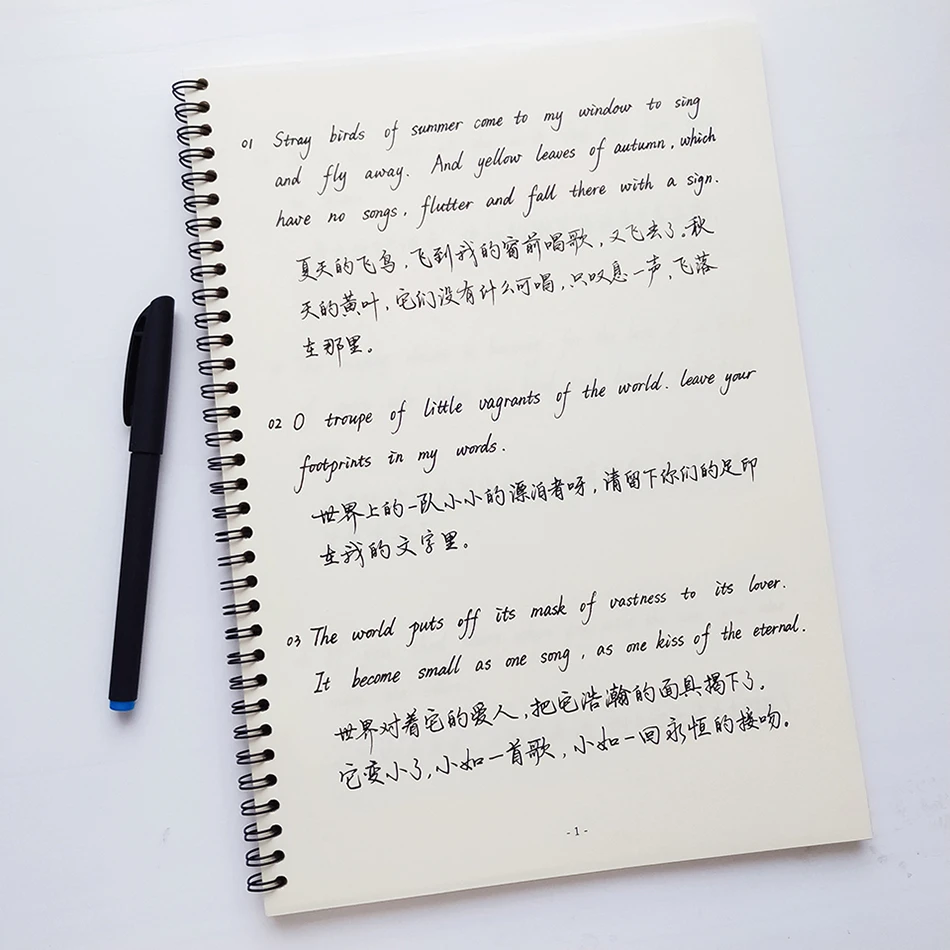 01 Stray birds of summer come to my window to sing
and fly away. And yellow leaves of autumn, which
have no songs, flutter and fall there with a sign.
夏天的飞鸟，飞到我的窗前唱歌，又飞去了。秋
天的黄叶，它们没有什么可唱，只叹息一声，飞落
在那里。
02 O troupe of little vagrants of the world. leave your
footprints in my words.
世界上的一队小小的漂泊者呀，请留下你们的足印
在我的文字里。
03 The world puts off its mask of vastness to its lover.
It become small as one song, as one kiss of the eternal.
世界对着它的爱人，把它浩瀚的面具揭下了。
它变小了，小如一首歌，小如一回永恒的接吻。
- 1 -